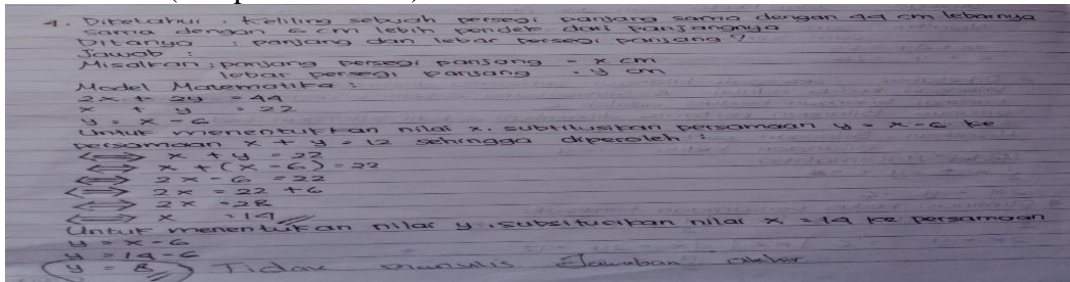 4. Diketahui : Keliling sebuah persegi panjang sama dengan 44 cm lebarnya
sama dengan 6 cm lebih pendek dari panjangnya
Ditanya : panjang dan lebar persegi panjang ?
Jawab :
Misalkan : panjang persegi panjang = x cm
lebar persegi panjang = y cm
Model Matematika :
2x + 2y = 44
x + y = 22
y = x - 6
Untuk menentukkan nilai x, subtitusikan persamaan y = x - 6 ke
persamaan x + y = 12 sehingga diperoleh :
⟺ x + y = 22
⟺ x + (x - 6) = 22
⟺ 2x - 6 = 22
⟺ 2x = 22 + 6
⟺ 2x = 28
⟺ x = 14
Untuk menentukan nilai y, substitusikan nilai x = 14 ke persamaan
y = x - 6
y = 14 - 6
y = 8 Tidak menulis Jawaban akhir